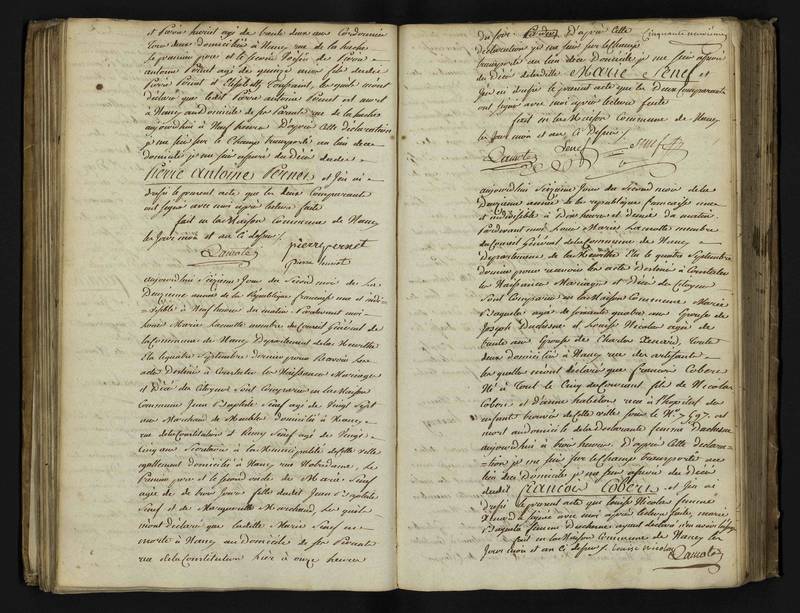 et Pierre huriot agé de trente deux ans Cordonnier
tous deux domiciliés à Nancy rue de la hache
le premier pere et le second Voisin de Pierre
antoine Pernet agé de quinze mois fils dudit
Pierre Pernet et Elizabeth Toussaint, lesquels m'ont
déclaré que ledit Pierre antoine Pernet est mort
à Nancy au domicile de ses Parents rue de la hache
aujourdhui à Neuf heures D'après cette déclaration
je me suis sur le Champ transporté au lieu de ce
domicile je me suis assuré du Décès dudit
Pierre Antoine Pernet et J'en ai
dressé le present acte que les deux Comparants
ont signé avec moi après lecture faite
fait en la Maison Commune de Nancy
les Jour mois et an Ci dessus /.
pierre pernet
Lamotte
pierre huriot
aujourdhui sixieme Jour du Second mois de La
Deuxieme année de la Republique francaise une et indi-
visible à Neuf heures du matin Pardevant moi
Louis Marie Lamotte membre du Conseil Général de
la Commune de Nancy Departement de la Meurthe
Elu le quatre Septembre dernier pour Recevoir les
actes destinés à Constater les Naissances Mariages
et Décès des Citoyens sont Comparus en la Maison
Commune Jean Baptiste Senef agé de Vingt Sept
ans Marchand de Meubles domicilié à Nancy
rue de la Constitution et Remy Senef agé de Vingt
Cinq ans Secretaire à la Municipalité de cette Ville
egallement domicilié à Nancy rue Notre Dame, le
Premier pere et le second oncle de Marie Senef
agée de trois Jours fille dudit Jean Baptiste
Senef et de Marguerite Marchand, Lesquels
m'ont déclaré que ladite Marie Senef est
morte à Nancy au Domicile de ses Parents
rue de la Constitution hier à onze heures
du soir. D'après cette
Cinquante neuvieme
déclaration je me suis sur le Champ
transporté au lieu de ce Domicile je me suis assuré
du Décès de ladite Marie Senef et
J'en ai dressé le present acte que les Deux Comparants
ont signé avec moi après lecture faite
fait en la Maison Commune de Nancy
les Jour mois et an Ci dessus /.
Lamotte Senef Senef
aujourdhui Sixieme Jour du Second mois de la
Deuxieme année de la republique francaise une
et indivisible à Dix heures et demie du matin
Pardevant moi Louis Marie Lamotte membre
du Conseil Général de la Commune de Nancy
Departement de la Meurthe Elu le quatre Septembre
dernier pour recevoir les actes Destinés à Constater
les Naissances Mariages et Décès des Citoyens
sont Comparues en la Maison Commune Marie
Baquela agée de soixante quatre ans Epouse de
Joseph Duchesne et Louise Nicolas agée de
trente ans Epouse de Charles Xenard, toutes
deux domiciliées à Nancy rue des artisants
lesquelles m'ont déclaré que francois Cobert
Né à Toul le Cinq du courant fils de Nicolas
Cobert et d'anne habillon recu à l'hopital des
enfants trouvés de cette Ville sous le No. 7597. est
mort au domicile de la declarante femme Duchesne
aujourdhui à trois heures. D'après cette declara-
-tion je me suis sur le champ transporté au
lieu du Domicile je me suis assuré du Décès
dudit francois Cobert et J'en ai
dressé le present acte que Louise Nicolas femme
Xenard a signé avec moi après lecture faite, marie
Baquela femme Duchesne ayant declaré n'en savoir l'usage
fait en la Maison Commune de Nancy les
Jour mois et an Ci dessus /. Louise nicolas
Lamotte